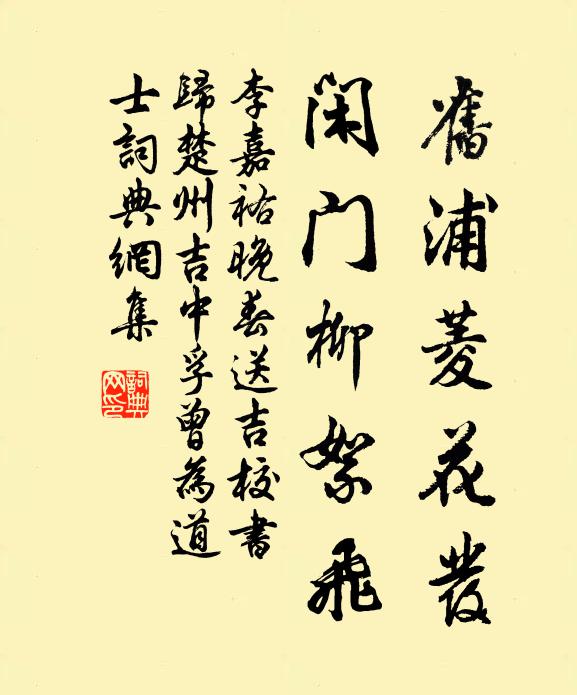 舊浦菱花發
閑門柳絮飛
李嘉祐晚春送吉校書
歸楚州吉中孚曾為道
士詞典網集
詞典
网印